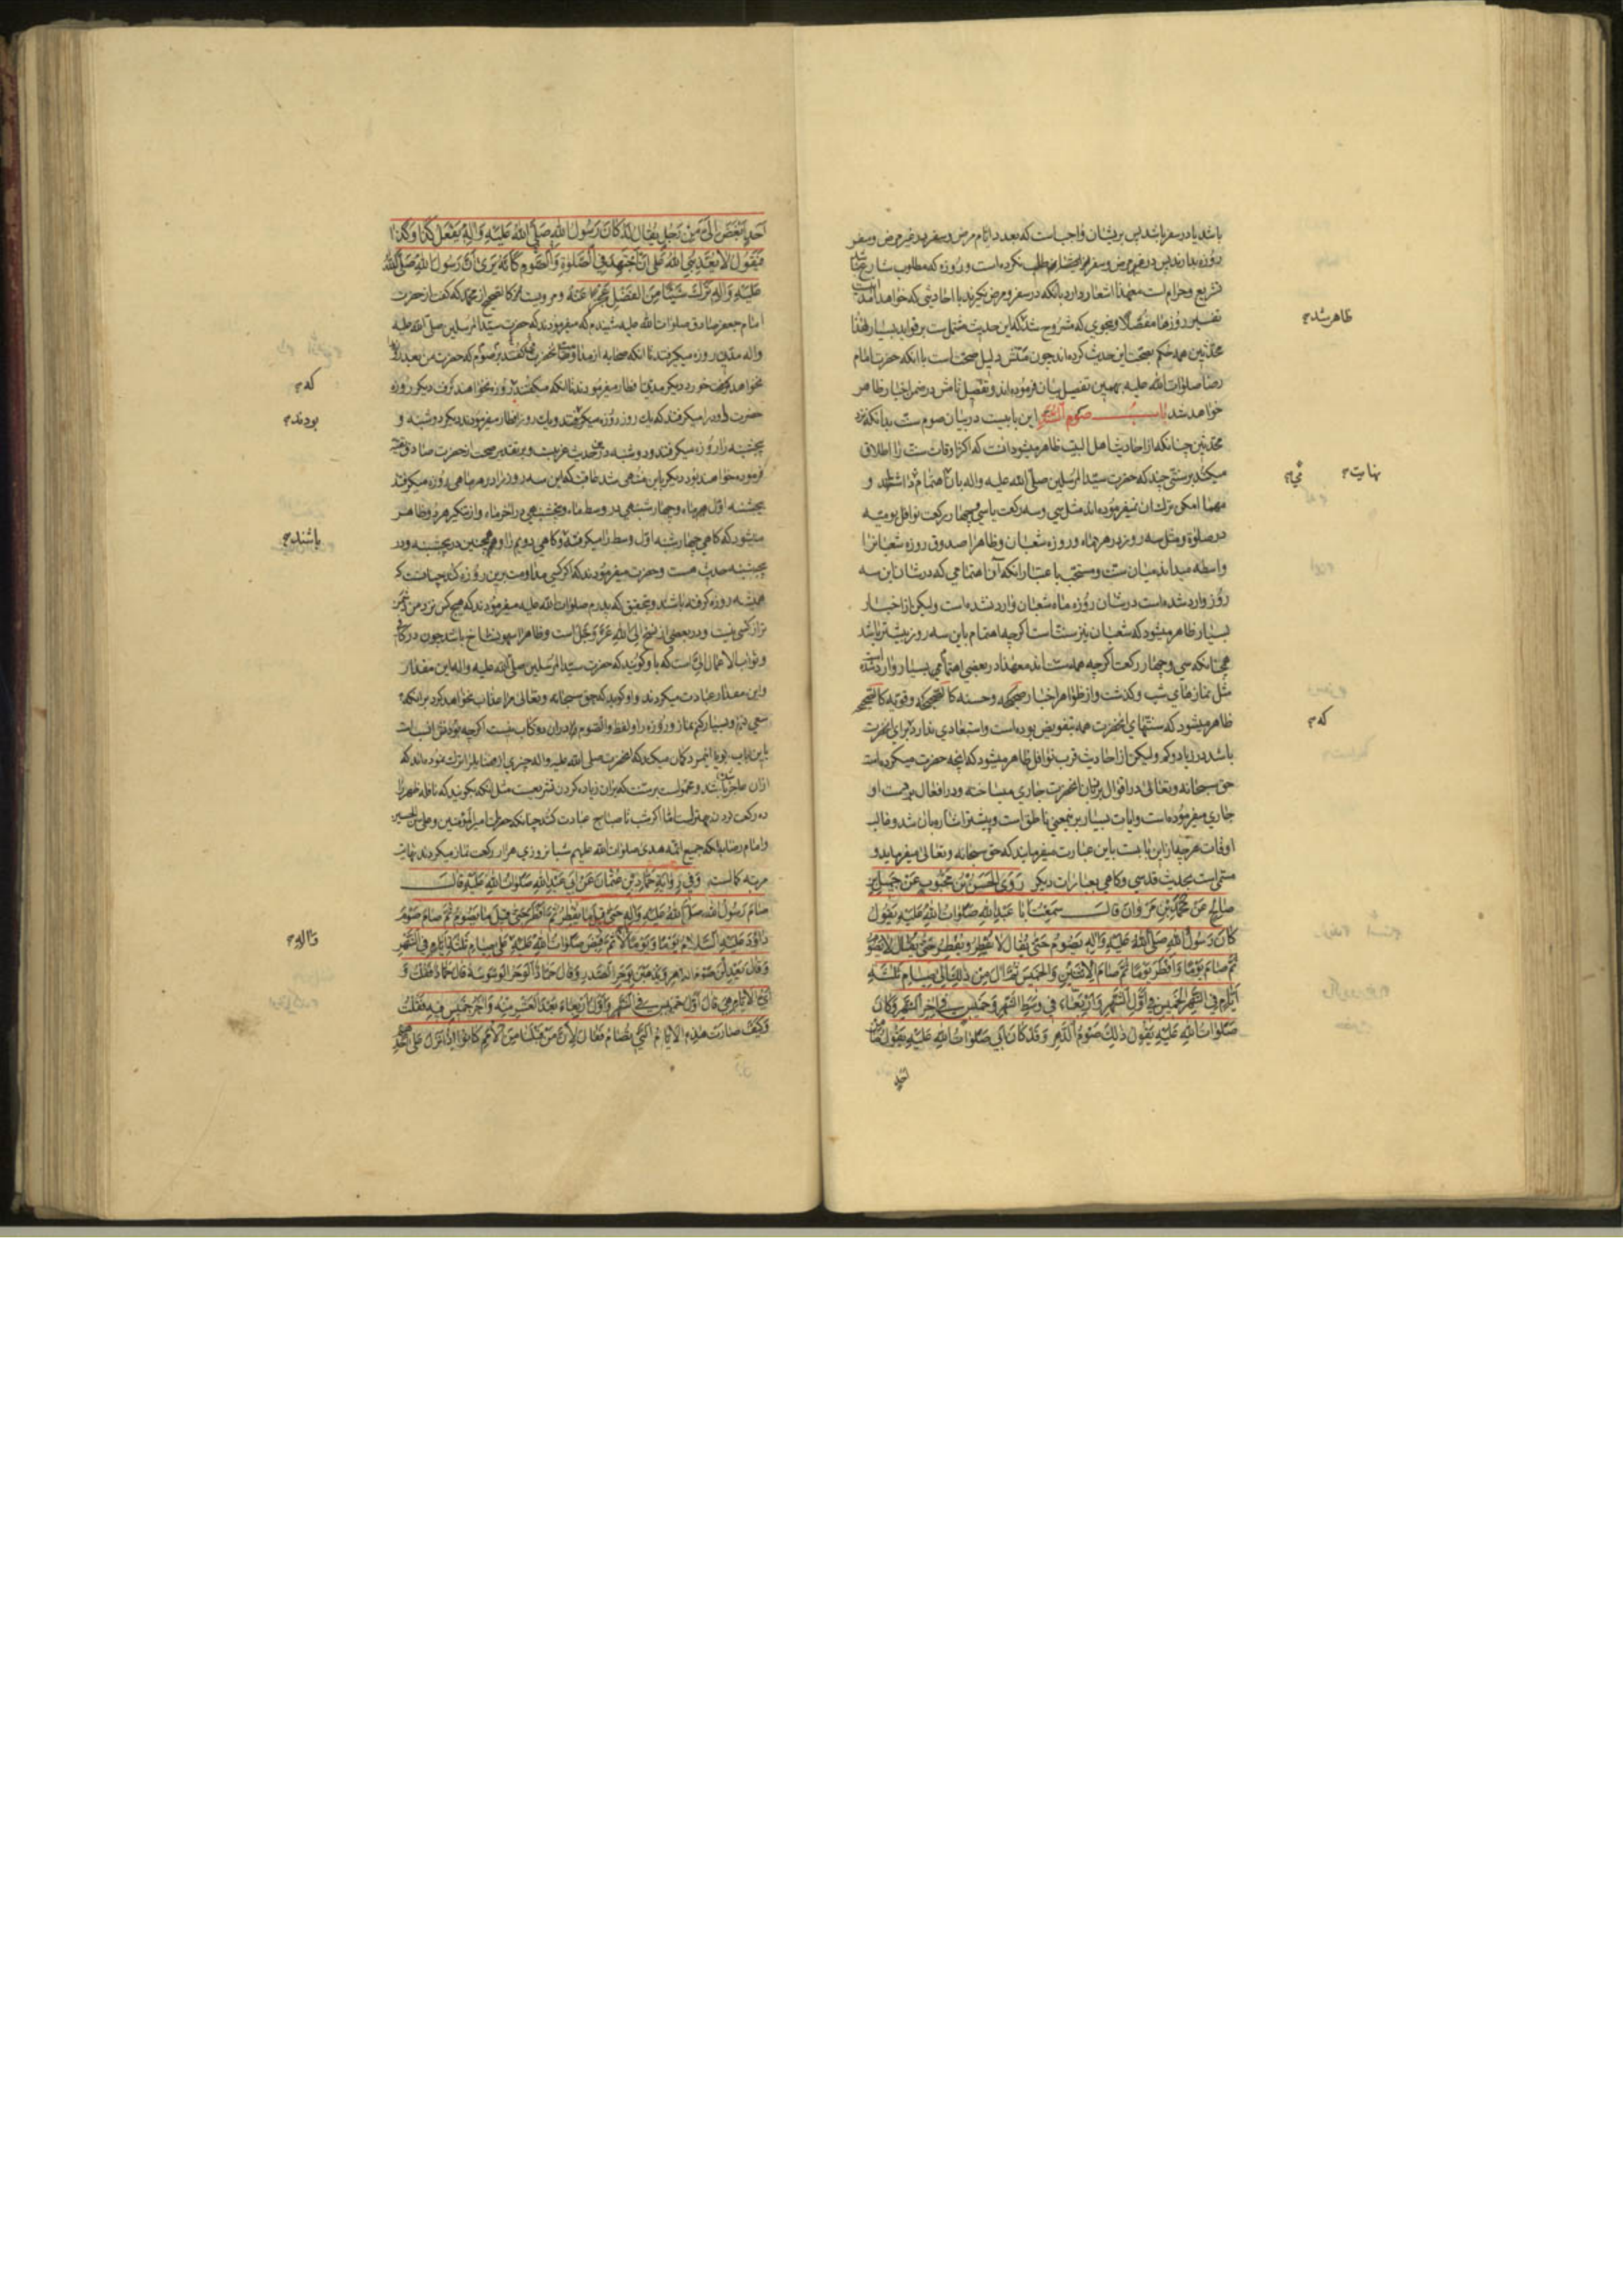 باشد یا در سفر باشد پس بر ایشان واجب است که بعد در ایام مرض و سفر در غیر مرض و سفر
روزه بدارند پس در غیر مرض و سفر نکرده است و روزه که مطلوب شارع نباشد
تشریع و حرام است معهذا اشعار دارد بآنکه در سفر و مرض نگیرند با احادیثی که خواهد آمد
تفسیر روزها مفصلا و بنحوی که مشروح شد که این حدیث مشتمل است بر فواید بسیار لهذا
محدثین همه حکم بصحت این حدیث کرده‌اند چون متنش دلیل صحت است با آنکه حضرت امام
رضا صلوات الله علیه بهمین تفصیل بیان فرموده‌اند و تفصیل تامش در ضمن اخبار ظاهر
خواهد شد باب صوم السنة این بابیست در بیان صوم سنت بدانکه نزد
محدثین چنانکه از احادیث اهل البیت ظاهر میشود آنست که اکثر اوقات سنت را اطلاق
میکنند بر سنتی چند که حضرت سید المرسلین صلی الله علیه و اله بآن اهتمام داشتند و
مهما امکن ترک آن نمیفرموده‌اند مثل سی و سه رکعت یا سی و چهار رکعت نوافل یومیه
در صلوة و مثل سه روز در هر ماه و روزه شعبان و ظاهرا صدوق روزه شعبان را
واسطه میداند میان سنت و مستحب باعتبار آنکه آن اهتمامی که در شان این سه
روز وارد شده است در شان روزه ماه شعبان وارد نشده است ولیکن از اخبار
بسیار ظاهر میشود که شعبان نیز سنت است اگرچه اهتمام باین سه روز بیشتر باشد
همچنانکه سی و چهار رکعت اگرچه همه سنت‌اند معهذا در بعضی اهتمامی بسیار وارد شده است
مثل نمازهای شب و گذشت و از ظواهر اخبار صحیحه و حسنه کالصحیحه و قویه کالصحیح
ظاهر میشود که سنتهای آنحضرت همه بتفویض بوده است و استبعادی ندارد برای آنحضرت
باشد در زیاد و کم ولیکن از احادیث قرب نوافل ظاهر میشود که آنچه حضرت میکرده است
حق سبحانه و تعالی در اقوال بر زبان آنحضرت جاری میساخته و در افعال بر دست او
جاری میفرموده است و ایات بسیار برینمعنی ناطق است و پیشتر اشاره بآن شد و غالب
اوقات هرچه از این بابست باین عبارت میفرمایند که حق سبحانه و تعالی میفرماید و
مسمی است بحدیث قدسی و گاهی بعبارات دیگر رَوَی الحَسَنُ بْنُ مَحْبُوبٍ عَنْ جَمیلِ بْنِ
صَالِحٍ عَنْ مُحَمَّدِ بْنِ مَرْوَانَ قَالَ سَمِعْتُ أَبَا عَبْدِ اللهِ صَلَوَاتُ اللهِ عَلَیْهِ یَقُولُ
کَانَ رَسُولُ اللهِ صَلَّی اللهُ عَلَیْهِ وَآلِهِ یَصُومُ حَتَّی یُقَالَ لَا یُفْطِرُ وَیُفْطِرُ حَتَّی یُقَالَ لَا یَصُومُ
ثُمَّ صَامَ یَوْمًا وَأَفْطَرَ یَوْمًا ثُمَّ صَامَ الإِثْنَیْنِ وَالخَمیسَ ثُمَّ آلَ مِنْ ذَلِکَ إِلَی صِیَامِ ثَلٰثَةِ
أَیَّامٍ فِی الشَّهْرِ الخَمیسِ فِی أَوَّلِ الشَّهْرِ وَأَرْبِعَاءَ فِی وَسَطِ الشَّهْرِ وَخَمیسٍ فِی آخِرِ الشَّهْرِ وَکَانَ
صَلَوَاتُ اللهِ عَلَیْهِ یَقُولُ ذَلِکَ صَوْمُ الدَّهْرِ وَقَدْ کَانَ أَبِی صَلَوَاتُ اللهِ عَلَیْهِ یَقُولُ مَا مِنْ
احد
ظاهر شده
نهایت
می
که
أَحَدٍ أَبْغَضَ إِلَیَّ مِنْ رَجُلٍ یُقَالُ لَهُ کَانَ رَسُولُ اللهِ صَلَّی اللهُ عَلَیْهِ وَآلِهِ یَفْعَلُ کَذَا وَکَذَا
فَیَقُولُ لَا یُعَذِّبُنِی اللهُ عَلَی أَنْ أَجْتَهِدَ فِی الصَّلٰوةِ وَالصَّوْمِ کَأَنَّهُ یَرَی أَنَّ رَسُولَ اللهِ صَلَّی اللهُ
عَلَیْهِ وَآلِهِ تَرَکَ شَیْئًا مِنَ الفَضْلِ عَجْزًا عَنْهُ و مرویست کالصحیح از محمد که گفت از حضرت
امام جعفر صادق صلوات الله علیه شنیدم که میفرمودند که حضرت سید المرسلین صلی الله علیه
واله مدتی روزه میگرفتند تا آنکه صحابه میگفتند که حضرت من بعد روزه
نخواهد خورد دیگر مدتی افطار میفرمودند تا آنکه میگفتند روزه نخواهند گرفت دیگر روزه
حضرت داود را میگرفتند که یک روز روزه میگرفتند و یک روز افطار میفرمودند دیگر دوشنبه و
پنجشنبه را روزه میگرفتند و دوشنبه در حدیث غریبست و بر تقدیر صحت از حضرت صادق تقیه
فرموده خواهند بود دیگر باین منتهی شد عاقبت که این سه روز را در هر ماهی روزه میگرفتند
پنجشنبه اول هر ماه و چهارشنبهی در وسط ماه و پنجشنبهی در آخر ماه و از تنکیر هر دو ظاهر
میشود که گاهی چهارشنبه اول وسط را میگرفته و گاهی دویم را و همچنین در پنجشنبه و در
پنجشنبه حدیث هست و حضرت میفرمودند که اگر کسی مداومت برین روزه کند چنانست که
همیشه روزه گرفته باشند و بتحقیق که پدرم صلوات الله علیه میفرمودند که هیچکس نزد من دشمن
تر از کسی نیست و در بعضی از نسخ الی الله عز و جل است و ظاهرا سهو نساخ باشد چون در کافی
و ثواب الاعمال الی است که باو گویند که حضرت سید المرسلین صلی الله علیه و اله این مقدار
و این مقدار عبادت میکردند و او گوید که حق سبحانه و تعالی مرا عذاب نخواهد کرد بر آنکه
سعی نمایم و بسیار کنم نماز و روزه را و لفظ والصوم در آن دو کتاب نیست اگرچه انسبست
باین باب گویا اینمرد گمان میکند که آنحضرت صلی الله علیه واله چیزی از فضایل را ترک نموده‌اند که
از آن عاجز باشد و محمولست بر سنت که بر آن زیاده کردن تشریعست مثل آنکه بگویند که نافله ظهر را
ده رکعت کردن بهتر است اما اگر شب تا صباح عبادت کند چنانکه حضرت امیر المؤمنین و علی بن الحسین
و امام رضا بلکه جمیع ائمه هدی صلوات الله علیهم شبانروزی هزار رکعت نماز میکردند نهایت
مرتبه کمالست وَفِی رِوَایَةِ حَمَّادِ بْنِ عُثْمَانَ عَنْ أَبِی عَبْدِ اللهِ صَلَوَاتُ اللهِ عَلَیْهِ قَالَ
صَامَ رَسُولُ اللهِ صَلَّی اللهُ عَلَیْهِ وَآلِهِ حَتَّی قِیلَ مَا یُفْطِرُ ثُمَّ أَفْطَرَ حَتَّی قِیلَ مَا یَصُومُ ثُمَّ صَامَ صَوْمَ
دَاوُدَ عَلَیْهِ السَّلَامُ یَوْمًا وَیَوْمًا لَا ثُمَّ قُبِضَ صَلَوَاتُ اللهِ عَلَیْهِ عَلَی صِیَامِ ثَلٰثَةِ أَیَّامٍ فِی الشَّهْرِ
وَقَالَ یَعْدِلْنَ صَوْمَ الدَّهْرِ وَیُذْهِبْنَ بِوَحَرِ الصَّدْرِ وَقَالَ حَمَّادٌ الوَحَرُ الوَسْوَسَةُ قَالَ حَمَّادٌ فَقُلْتُ وَ
أَیُّ الأَیَّامِ هِیَ قَالَ أَوَّلُ خَمیسٍ فِی الشَّهْرِ وَأَوَّلُ أَرْبِعَاءَ بَعْدَ العَشْرِ مِنْهُ وَآخِرُ خَمیسٍ فِیهِ فَقُلْتُ
وَکَیْفَ صَارَتْ هٰذِهِ الأَیَّامُ الَّتِی تُصَامُ فَقَالَ لِأَنَّ مَنْ قَبْلَنَا مِنَ الأُمَمِ کَانُوا إِذَا نَزَلَ عَلَی أَحَدِهِمُ
که
بودند
باشند
واله